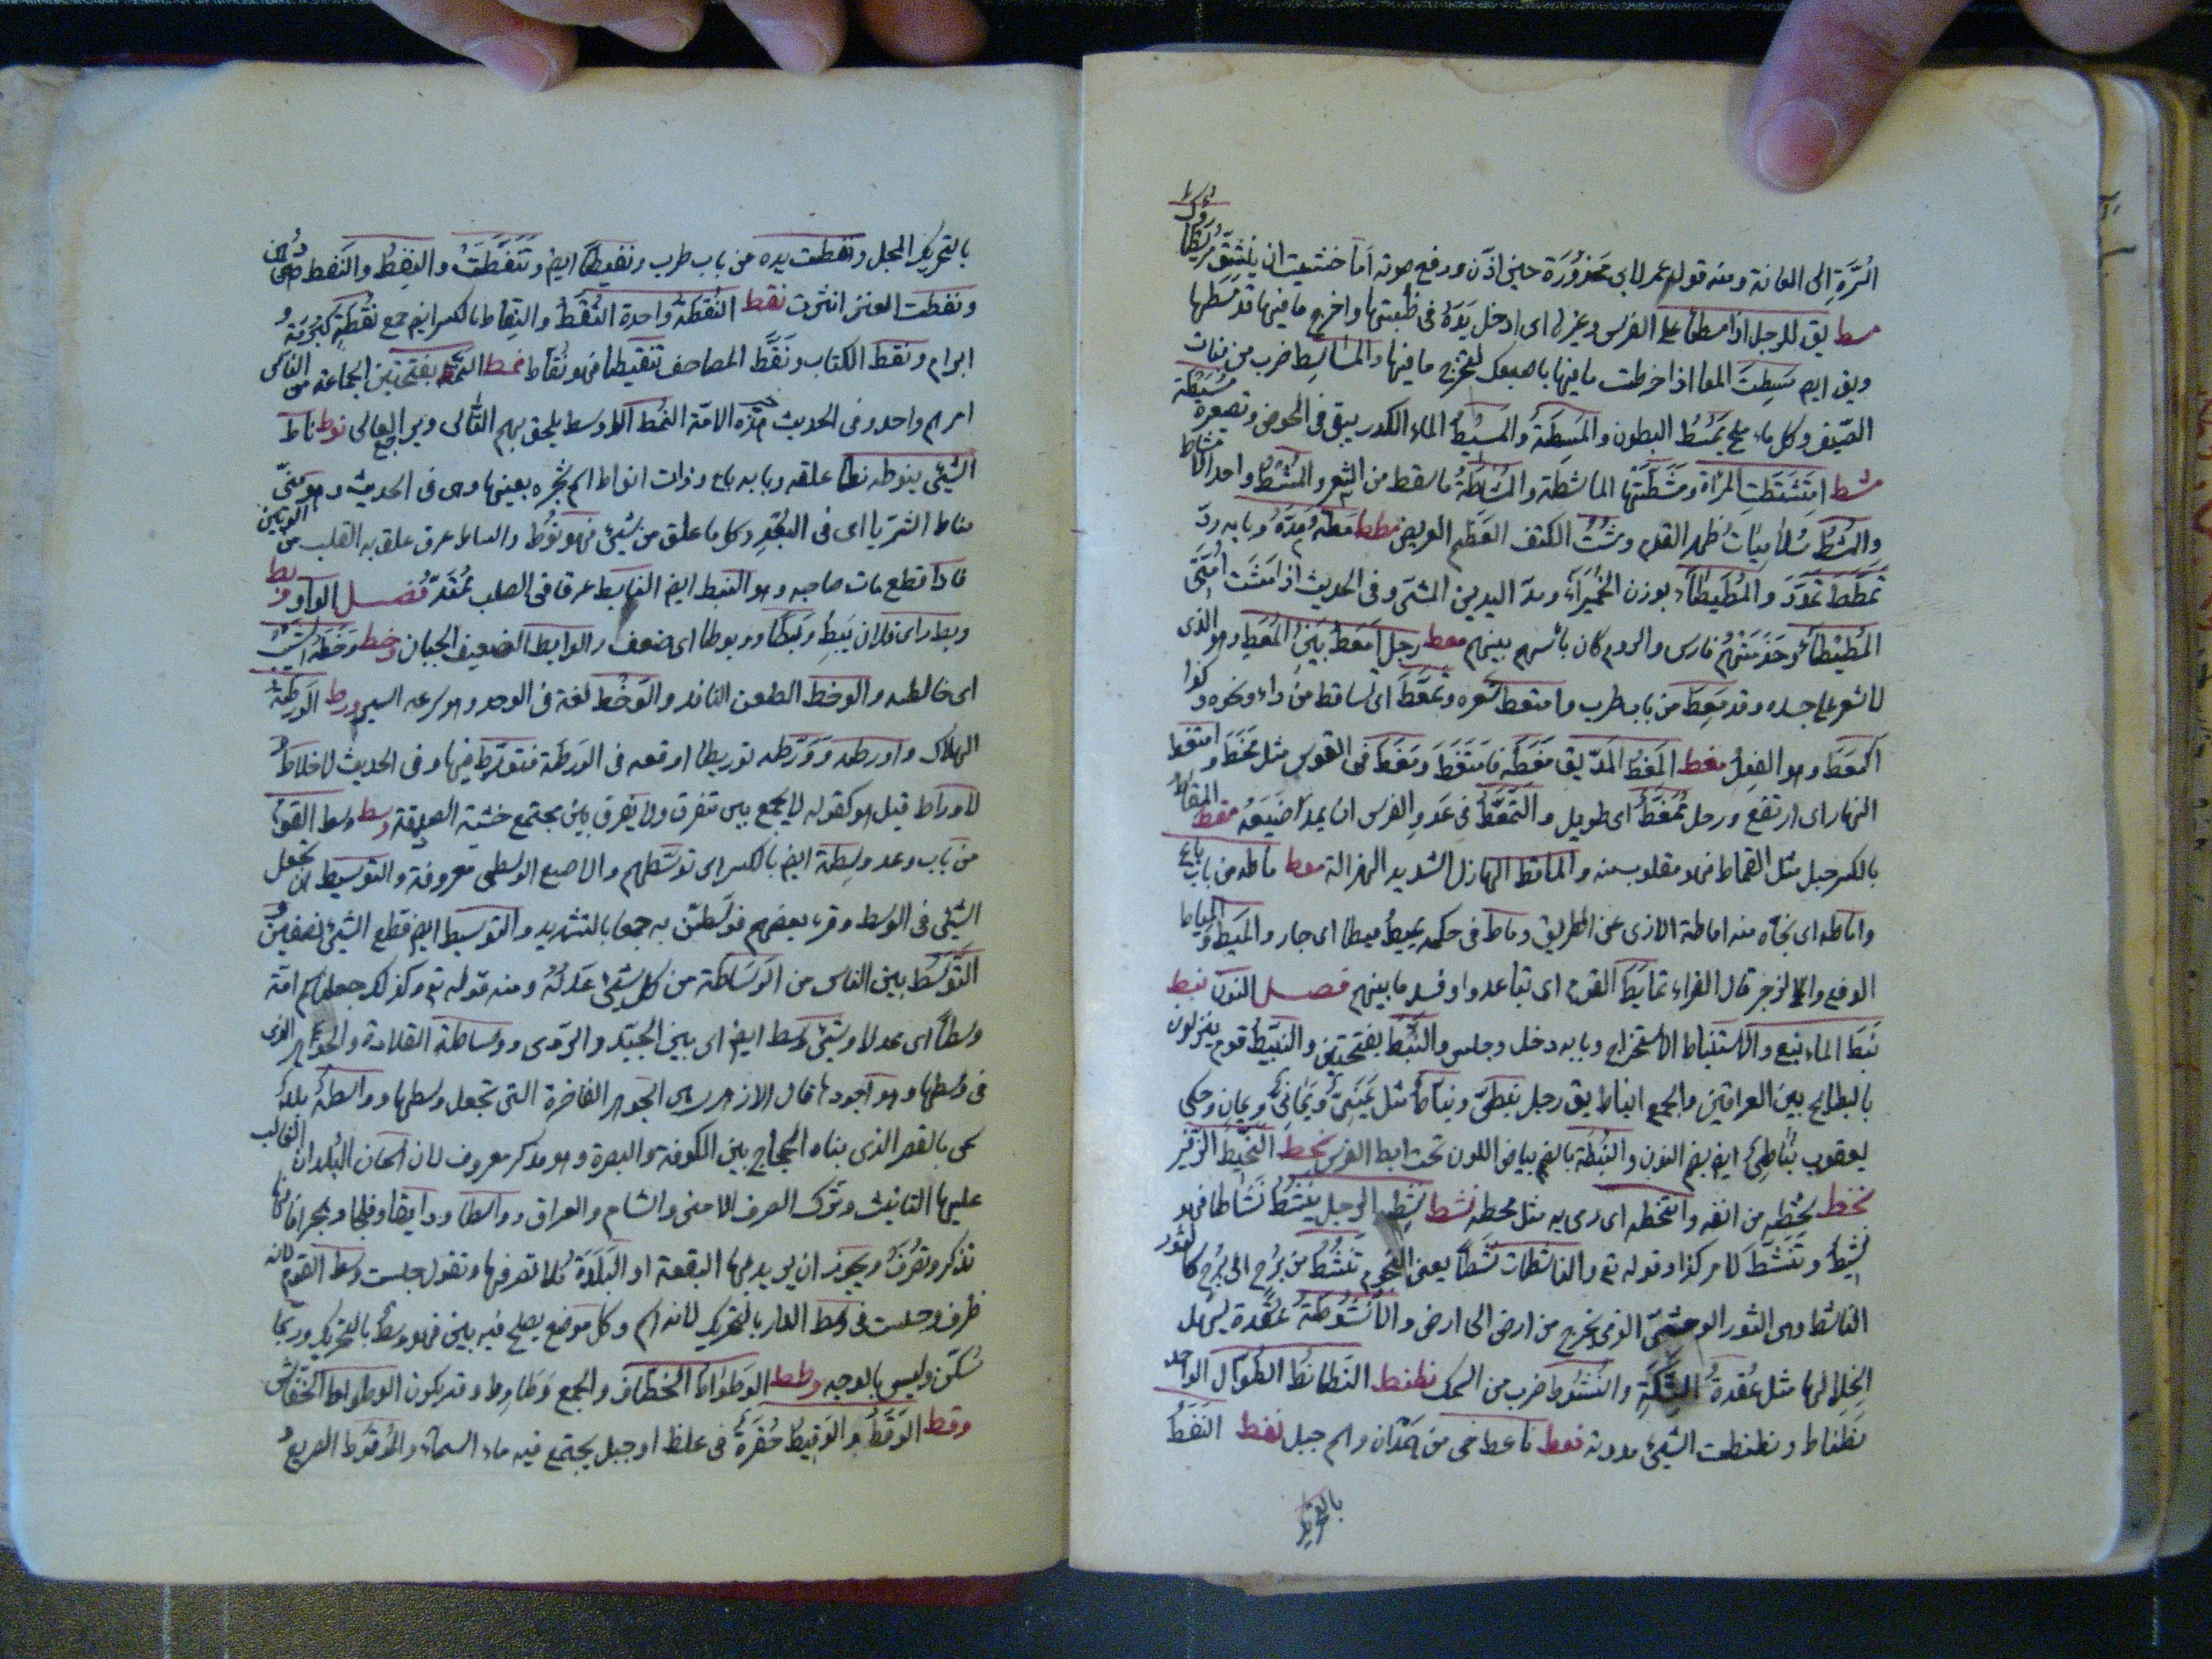 السُّرَّةِ الى العانة ومنه قوله عمر لابى محذورة حين اذّن ورفع صوته اما خشيت ان ينشقّ مُرَيْطَاؤُك
مسط يق للرجل اذا سطا على الفرس وغيرها اى ادخل يَدَهُ فى ظَبْيَتِها واخرج ما فيها قد مَسَطَها
ويق ايض مَسَطَت المعا اذا خرطت ما فيها باصبعك لتخرج ما فيها والماسِط ضرب من نبات
الصّيف وكل ماء ملح يَمْسُط البطون والمَسِيطَةُ والمَسيطُ الماء الكدر يبقى فى الحوض وتصغيره مُسَيِّطة
مشط امتَشَطَتِ المرأة ومَشَّطَتْها الماشطة والمُشَاطَةُ ما سقط من الشعر والمُشْطُ واحد الامشاط
والمشْطُ سُلامَيَاتُ ظهر القدم ومُشْطُ الكتف العَظْم العريض مطط مَطَّهُ مَدَّهُ وبابه ردّ
تَمَطَّطَ تمَدَّدَ والمُطَيْطاء بوزن الحُمَيْراء ومدّ اليدين المشى وفى الحديث اذا مَشَتْ امّتى
المُطَيْطَاء وخَدَمَتْهُمْ فارس والروم كان بأسهم بينهم معط رجل أَمْعَطُ بَيِّنُ المَعَطِ وهو الذى
لا شعر على جسده وقد مَعِطَ من باب طرب وامتعط شعره وتَمَعَّطَ اى تساقط من داء ونحوه وكذا
امَّعَطَ وهو الفِعلُ مغط المَغْطُ المَدّ يق مَغَطَه فامْتَغَطَ ومَغَطَ فى القوس مثل مَخَطَ وامتغط
النهار اى ارتفع ورجل مُمَّغَطٌ اى طويل والتَّمَغُّطُ فى عَدْوِ الفرس ان يمدّ ضَبْعَيْه مقط المِقاط
بالكسر حبل مثل القماط فهو مقلوب منه والماقط الهازل الشديد الهزال ميط ماطه من باب باع
واماطه اى نحّاه منه اماطة الاذى عن الطريق وماط فى حكمه يَمِيطُ ميطا اى جار والمَيْطُ والمياط
الدفع والزجر قال الفراء تمايَطَ القوم اى تباعدوا وفسد ما بينهم فصل النون نبط
نَبَطَ الماء نبع والاستنباط الاستخراج وبابه دخل وجلس والنَّبَطُ بفتحتين والنَّبيطُ قوم ينزلون
بالبطايح بين العراقين والجمع انباط يق رجل نَبَطِىّ ونَبَاط مثل يَمَنىّ ويَمانىّ ويمان وحكى
يعقوب نُبَاطِىّ ايض بضم النون والنُّبْطَة بالضم بياض اللون تحت ابط الفرس نحط النَّحيطُ الزّفير
نخط نَخَطَهِ من انفه وانتخطه اى رمى به مثل مخطه نشط نَشِطَ الرجل يَنْشَطُ نَشَاطا فهو
نَشِيطٌ وتَنَشَّطَ لامر كذا وقوله تع والناشطات نَشْطا يعنى النجوم تَنْشُطُ من بُرْج الى بُرْج كالثور
الناشط وهى الثور الوحشىّ الذى يخرج من ارض الى ارض والأُنشُوطَةُ عُقْدة يسهل
انحلالها مثل عُقْدةِ التِّكَّةِ والنَّشُوط ضرب من السمك نطنط النَّطانطُ الطِّوال الواحد
نَطْنَاط ونطنطت الشيئ مددته نعط ناعط حى من هَمْدَان واسم جبل نفط النَفَطُ
بالتحريك
بالتحريك المجل ونفطت يده من باب طرب ونفيطا ايض وتَنَفَّطَتْ والنِفْطُ والنَفط دُهْن
ونفطت العنز انثرت نقط النُقْطَة واحدة النُقَطُ والنِقَاط بالكسر ايض جمع نُقْطَةٍ كبُرْمَة و
ابرام ونقط الكتاب ونَقَّطَ المصاحف تنقيطا فهو نَقّاط نمط النَمَطُ بفتحتين الجماعة من الناس
امرهم واحد وفى الحديث خير هذه الامّة النمَط الاوسط يلحق بهم التّالى ويرجع اليهم الغالى نوط ناط
الشيئ ينوطه نوطا علقه وبابه باع وذات انواط اسم شجرة بعينها وهى فى الحديث وهو منّى
مناط الثريّا اى فى البُعْدِ وكل ما علق من شيئ فهو نَوْط والنياط عرق علق به القلب من الوتين
فاذا قطع مات صاحبه وهو النيط ايض النايط عرق فى الصلب مُمْتَدّ فصل الواو وبط
وبط راى فلان يَبِطُ وَبْطاً ووبوطا اى ضعف والوابط الضعيف الجبان وخط وَخَطَهُ الشيب
اى خالطه والوخط الطعن النافذ والوَخْط لغة فى الوحد وهو سرعة السير ورط الوَرْطَةُ
الهلاك واورطه ووَرَّطه توريطا اوقعه فى الورطة فتَوَرَّط فيها وفى الحديث لا خلاط و
لا وراط قيل هو كقوله لا يجمع بين متفرق ولا يفرق بين مجتمع خشية الصدقة وسط وسط القوم
من باب وعد وسِطة ايض بالكسر اى توسّطهم والاصبع الوسطى معروفة والتوسيط ان تجعل
الشيئ فى الوسط وقرء بعضهم فوسّطن به جمعا بالتشديد والتوسيط ايض قطع الشيئ نصفين و
التّوَسُّط بين الناس من الوَسَاطة من كل شيئ عَدْلُهُ ومنه قوله تع وكذلك جعلناكم امّة
وسطاً اى عدلا وشيئ وسط ايض اى بين الجيّد والرّدى وواسطة القلادة والجوهر الذى
فى وسطها وهو اجودها قال الازهرى هى الجوهر الفاخرة التى تجعل وسطها وواسطة بلد
سمى بالقصر الذى بناه الحجاج بين الكوفة والبصرة وهو مذكر معروف لان اسماء البُلدان الغالب
عليها التانيث وترك الصرف الا منى والشام والعراق وواسطا ودابقا وفلجا وهجرا فانها
تذكر وتُصْرَفُ ويجوز ان يريد بها البقعة او البَلْدَة فلا تصرفها وتقول جلست وسط القوم لانه
ظرف وجلست فى وسط الدار بالتحريك لانه اسم وكل موضع يصلح فيه بين فهو وسط بالتحريك وربما
سُكّن وليس بالوجه وطط الوَطْوَاطُ الخطّاف والجمع وَطَاوِط وقد يكون الوطواط الخفاش
وقط الوَقْطُ والوَقِيطُ حُفْرَةٌ فى غلظ او جبل يجتمع فيه ماء السماء والمَوْقُوط الصريع